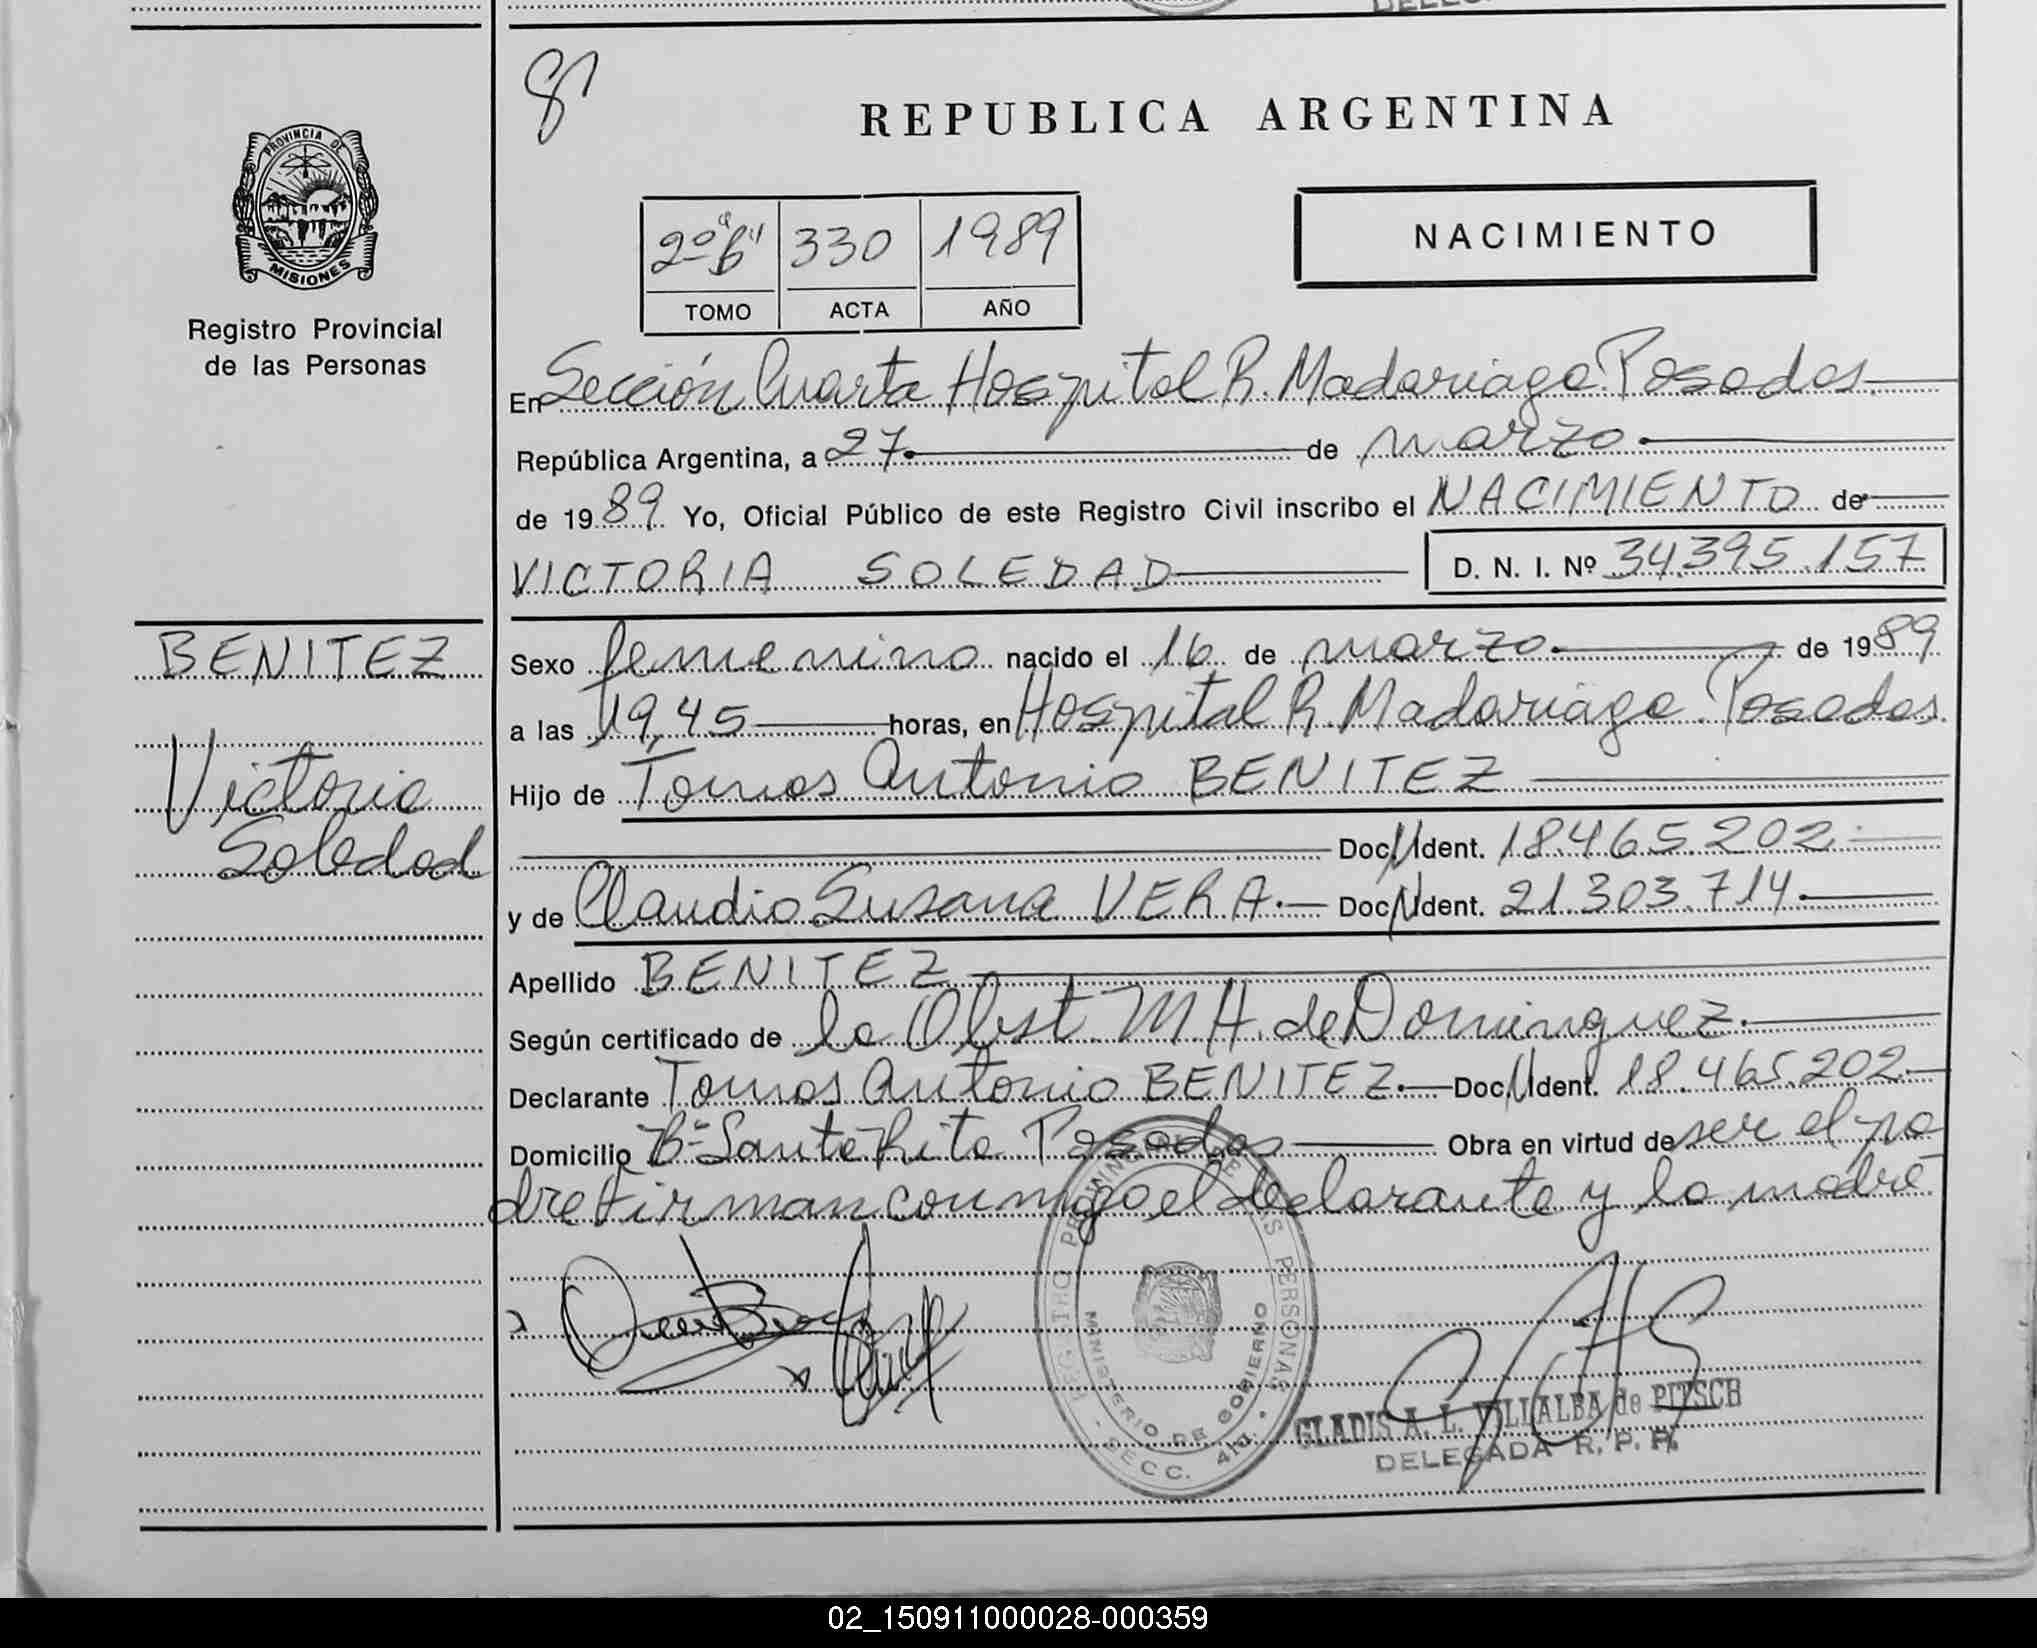 8
REPUBLICA ARGENTINA
PROVINCIA DE
MISIONES
Registro Provincial
de las Personas
2º "B" 330 1989
TOMO ACTA AÑO
NACIMIENTO
En Sección Cuarta Hospital R. Madariaga. Posadas.
República Argentina, a 27 de marzo
de 1989 Yo, Oficial Público de este Registro Civil inscribo el NACIMIENTO de
VICTORIA SOLEDAD D. N. I. Nº 34.395.157
BENITEZ
Victoria
Soledad
Sexo femenino nacido el 16 de marzo. de 1989
a las 19,45 horas, en Hospital R. Madariaga. Posadas.
Hijo de Tomas Antonio BENITEZ
Doc. N Ident. 18.465.202
y de Claudia Susana VERA. Doc. N Ident. 21.303.714.
Apellido BENITEZ
Según certificado de la Obst. M H. de Dominguez.
Declarante Tomas Antonio BENITEZ. Doc. N Ident. 18.465.202
Domicilio Bº Santa Rita Posadas Obra en virtud de ser el pa
dre firman conmigo el declarante y la madre
REGISTRO PROVINCIAL DE LAS PERSONAS
MINISTERIO DE GOBIERNO
SECC. 4ta.
GLADIS A. L. VILLALBA de PITSCH
DELEGADA R. P. P.
02_150911000028-000359